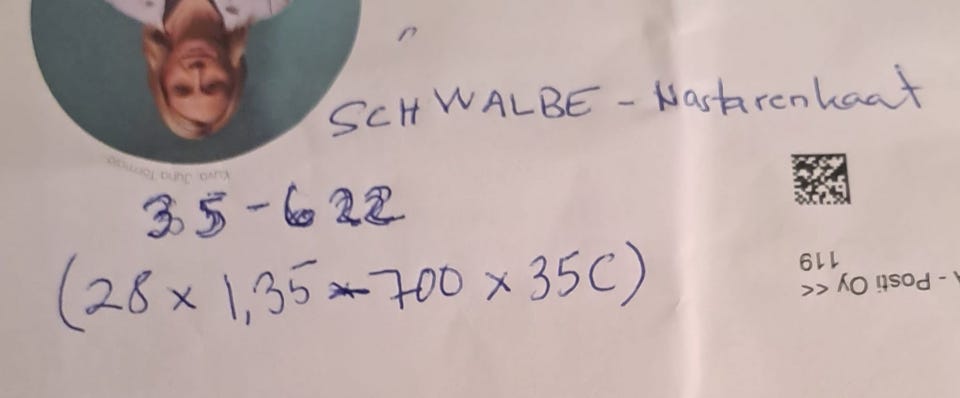 SCHWALBE - Nastarenkaat
35-622
(28 x 1,35 - 700 x 35C)
Kuva: Juha Tormop
119
- Posti Oy <<